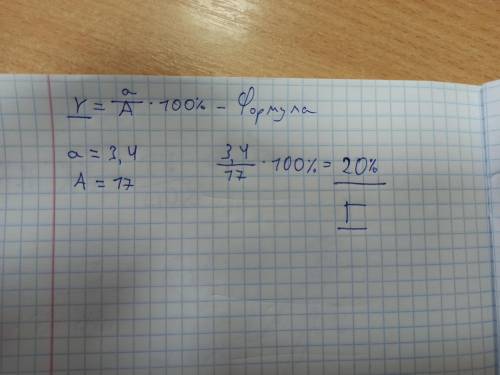 r = a/A · 100% - Формула
a = 3,4
A = 17
3,4/17 · 100% = 20%
Г